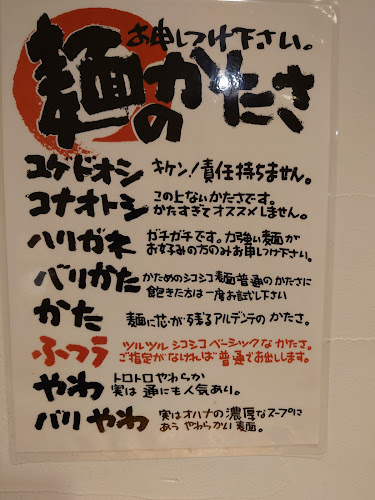 お申しつけ下さい。
麺のかたさ
ユゲドオシ キケン!責任持ちません。
コナオトシ この上ないかたさです。
かたすぎてオススメしません。
ハリガネ ガチガチです。力強い麺が
お好みの方のみお申しつけ下さい。
バリかた かためのシコシコ麺普通のかたさに
飽きた方は一度お試し下さい
かた 麺に芯が残るアルデンテのかたさ。
ふつう ツルツルシコシコベーシックなかたさ。
ご指定がなければ普通でお出しします。
やわ トロトロやわらか
実は通にも人気あり。
バリやわ 実はオハナの濃厚なスープに
あうやわらかい麺。